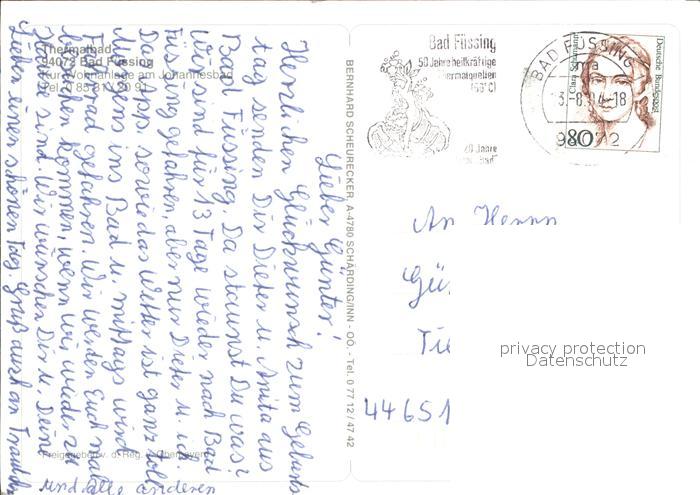 Thermalbad
94072 Bad Füssing
Kur-Wohnanlage am Johannesbad
Tel. 0 85 31 / 2 20 91
Lieber Günter!
Herzlichen Glückwunsch zum Geburts
tag senden Dir Dieter u. Anita aus
Bad Füssing. Da staunst Du was?
Wir sind für 13 Tage wieder nach Bad
Füssing gefahren, aber nur Dieter u. ich.
Das App. sowie das Wetter ist ganz toll.
Morgens ins Bad u. mittags wird
Fahrrad gefahren. Wir werden Euch mal
besuchen kommen, wenn wir wieder zu
Hause sind. Wir wünschen Dir u. Deine
Lieben einen schönen Tag. Gruß auch an
und alle anderen
Freigegeben v. d. Reg. v. Oberbayern
BERNHARD SCHEURECKER, A-4780 SCHÄRDING/INN - OÖ. - Tel. 0 77 12 / 47 42
Bad Füssing
50 Jahre heilkräftige
Thermalquellen
(56°C)
20 Jahre
Bad
BAD FÜSSING
94072
Clara Schumann
Deutsche Bundespost
80
An Herrn
Gü
44651
privacy protection
Datenschutz